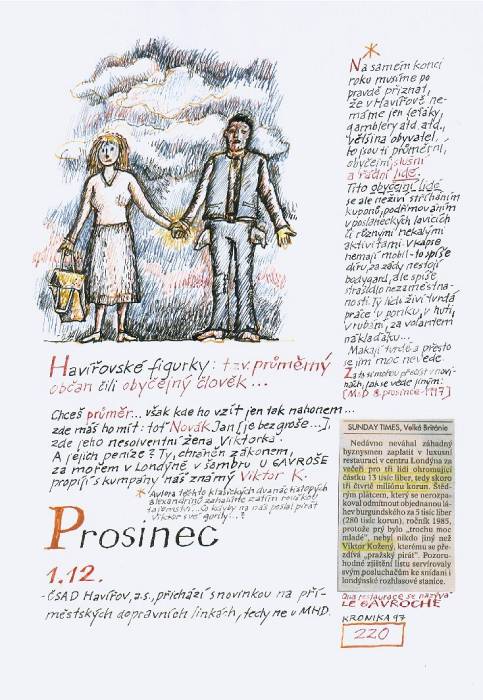 Na samém konci
roku musíme po
pravdě přiznat,
že v Havířově ne-
máme jen feťáky,
gamblery atd. atd.,
většina obyvatel,
to jsou ti průměrní,
obyčejní, slušní
a řádní lidé.
Tito obyčejní lidé
se ale neživí stříháním
kuponů, podřimováním
v poslaneckých lavicích
či různými nekalými
aktivitami. V kapse
nemají mobil - to spíše
díru, za zády nestojí
bodygard, ale spíše
strašidlo nezaměstna-
nosti. Ty lidi živí tvrdá
práce v porubu, v huti,
v rubání, za volantem
náklaďáku...
Makají tvrdě a přesto
se jim moc nevede.
Za to si mohou přečíst v novi-
nách, jak se vede jiným:
[MfD 8. prosince 1997]
Havířovské figurky: tzv. průměrný
občan čili obyčejný člověk...
Chceš průměr... však kde ho vzít jen tak nahonem...
zde máš ho mít: toť Novák Jan [je bez groše...],
zde jeho nesolventní žena Viktorka.
A jejich peníze? Ty, chráněn zákonem,
za mořem v Londýně v šambru U GAVROŠE
propíjí s kumpány náš známý Viktor K.
* Autora těchto klasických dvanáctistopých
alexandrinů zahalíme zatím rouškou
tajemství... Co kdyby na něj poslal pirát
Viktor své gorily...?
SUNDAY TIMES, Velká Británie
Nedávno neváhal záhadný
byznysmen zaplatit v luxusní
restauraci v centru Londýna za
večeři pro tři lidi ohromující
částku 13 tisíc liber, tedy skoro
tři čtvrtě miliónu korun. Ště-
drým plátcem, který se nerozpa-
koval odmítnout objednanou lá-
hev burgundského za 5 tisíc liber
(280 tisíc korun), ročník 1985,
protože prý bylo „trochu moc
mladé", nebyl nikdo jiný než
Viktor Kožený, kterému se pře-
zdívá „pražský pirát". Pozoru-
hodné zjištění listu servírovaly
svým posluchačům ke snídani i
londýnské rozhlasové stanice.
Ona restaurace se nazývá
LE GAVROCHE
Prosinec
1.12.
- ČSAD Havířov, a.s., přichází s novinkou na pří-
městských dopravních linkách, tedy ne u MHD.
KRONIKA 97
220